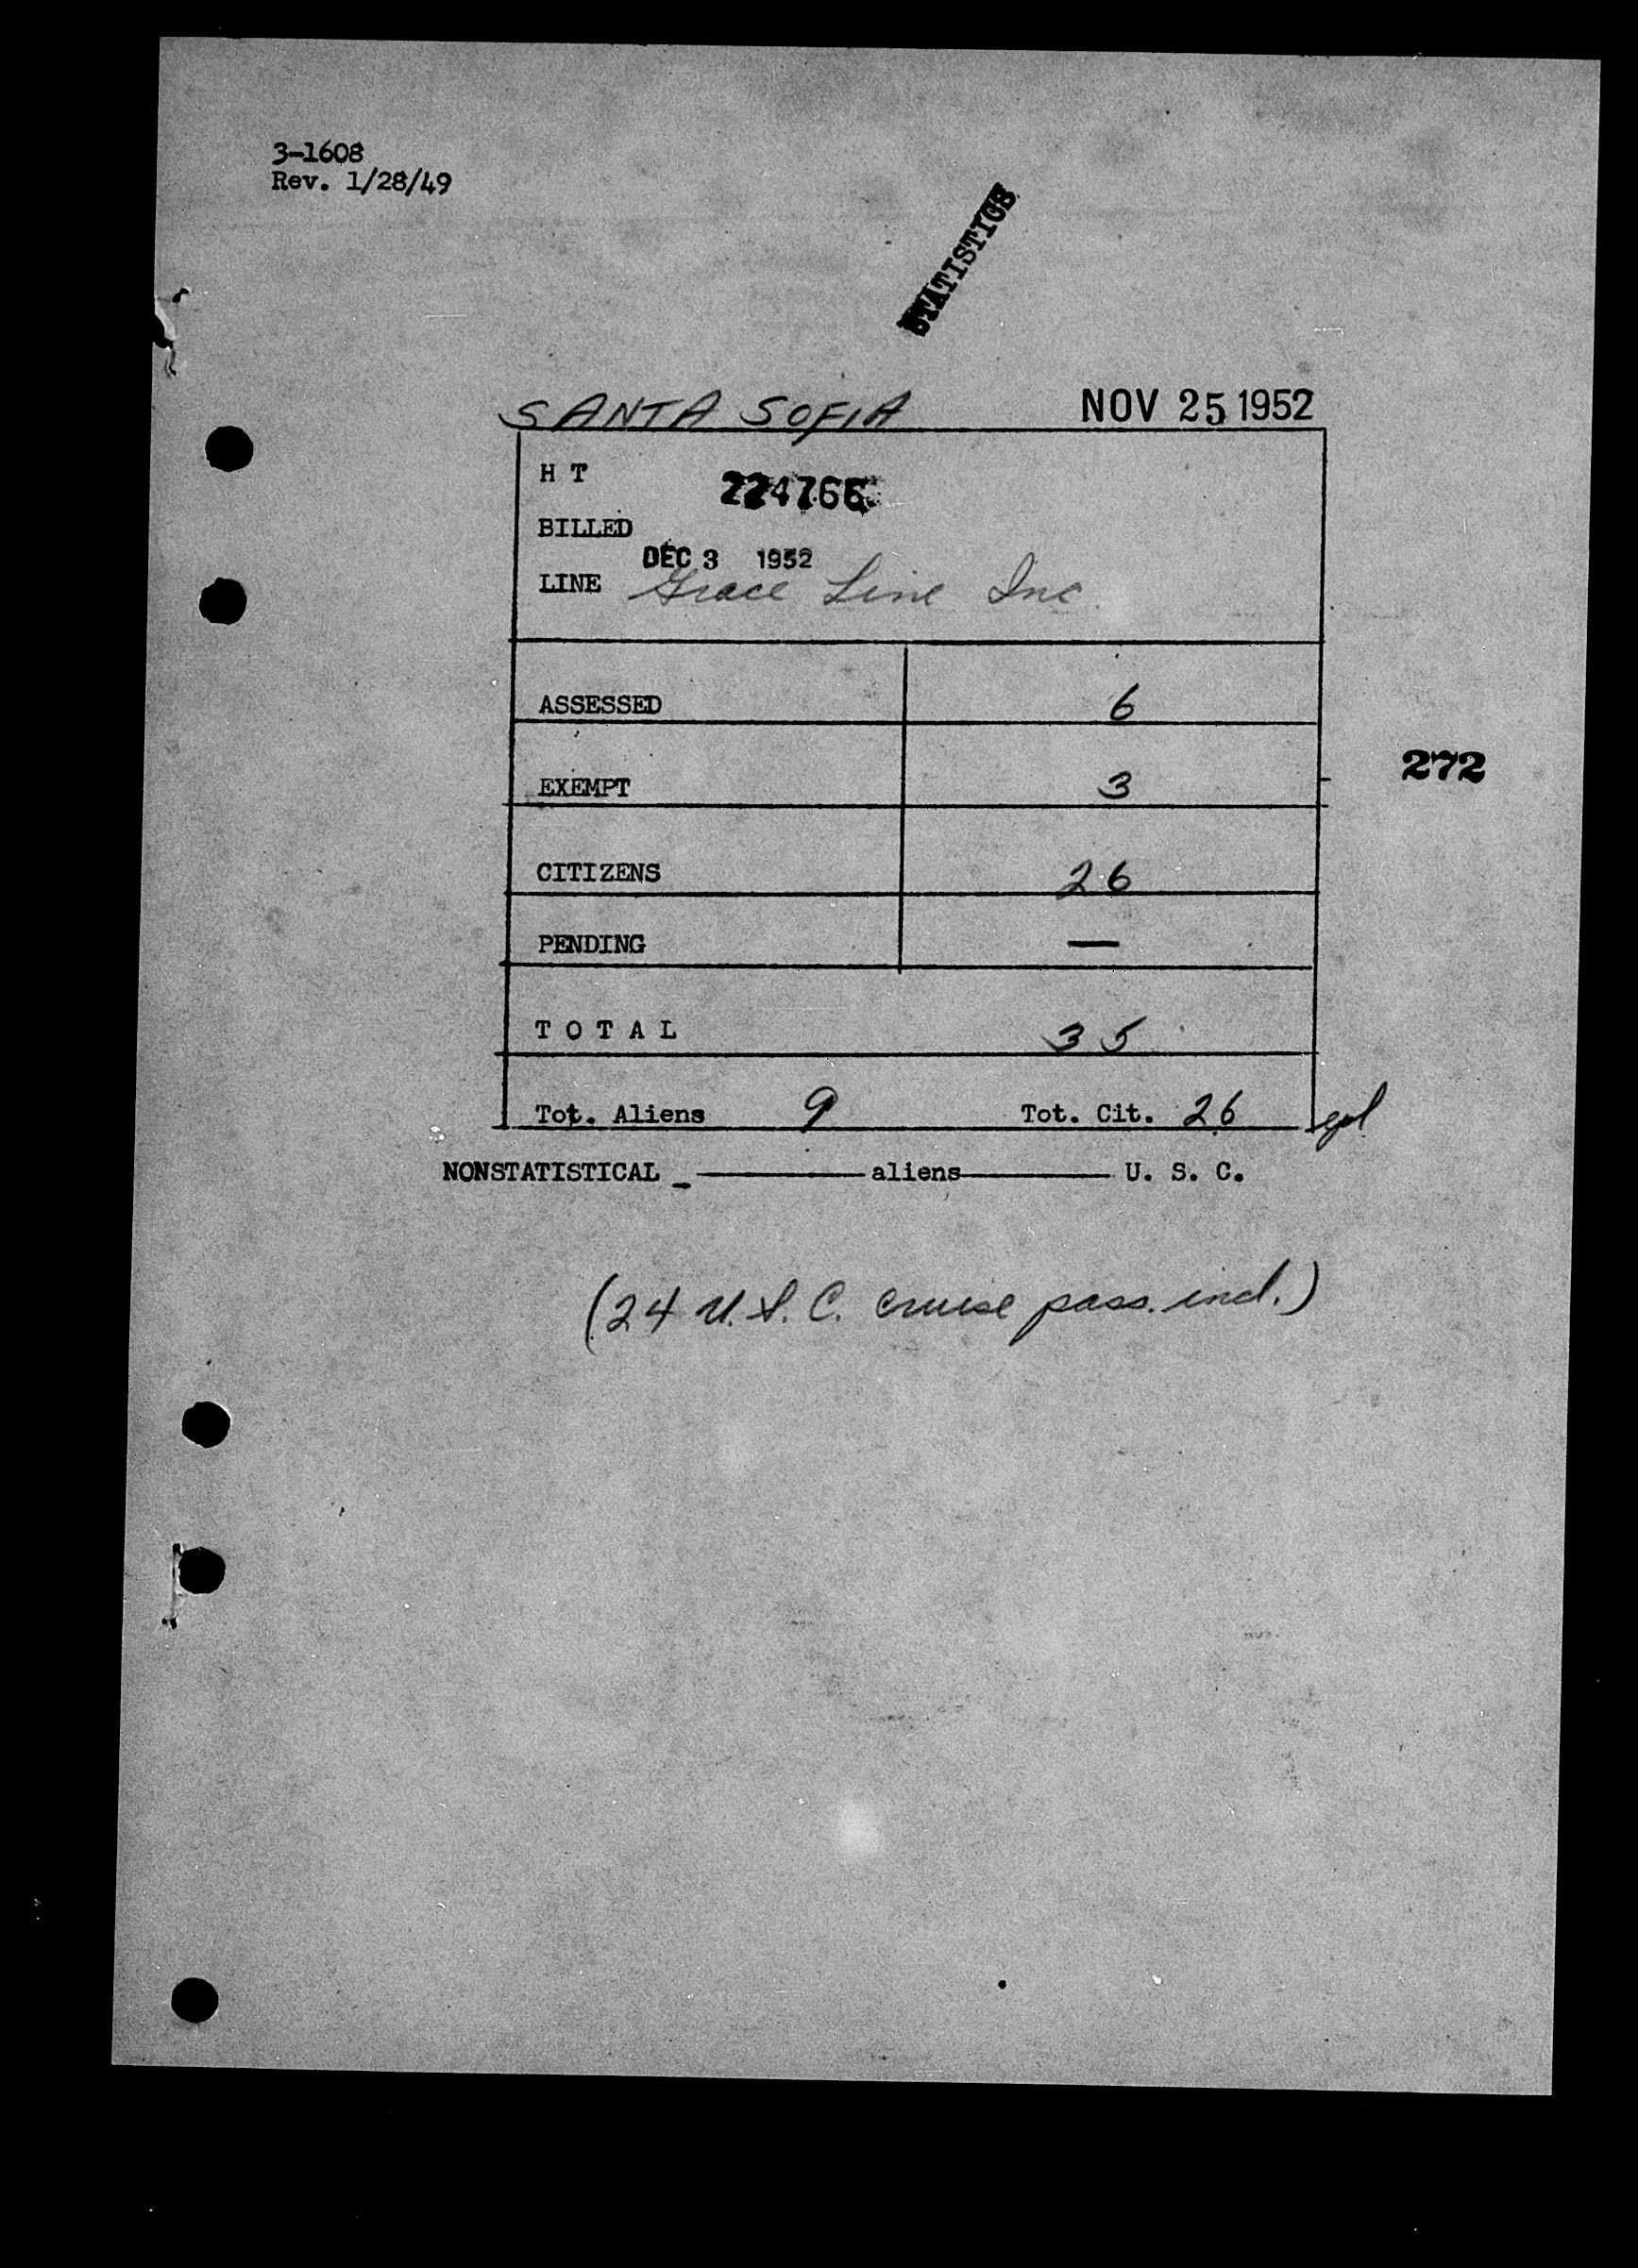 3-1608
Rev. 1/28/49
STATISTICS
SANTA SOFIA NOV 25 1952
H T 224766
BILLED
DEC 3 1952
LINE Grace Line Inc.
ASSESSED 6
272
EXEMPT 3
CITIZENS 26
PENDING —
T O T A L 35
Tot. Aliens 9 Tot. Cit. 26
NONSTATISTICAL _ ——— aliens ——— U. S. C.
(24 U.S.C. cruise pass. incl.)